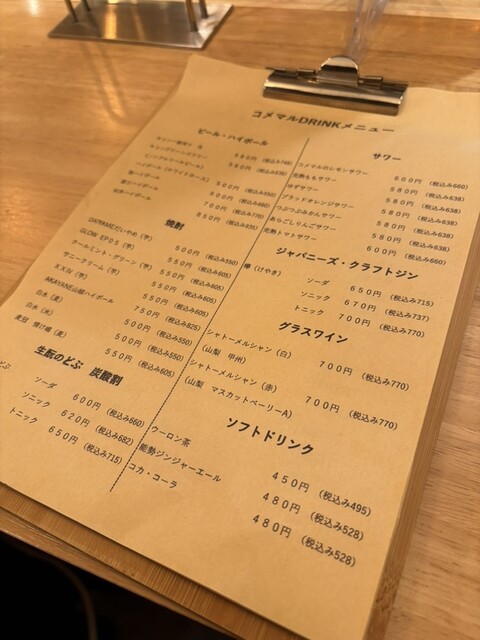 コメマルDRINKメニュー
ビール・ハイボール
580円 (税込み638)
500円 (税込み550)
600円 (税込み660)
700円 (税込み770)
850円 (税込み935)
焼酎
DAIYAMEだいやめ (芋) 500円 (税込み550)
GLOW EP05 (芋) 550円 (税込み605)
クールミント・グリーン (芋) 550円 (税込み605)
サニークリーム (芋) 550円 (税込み605)
大火山 550円 (税込み605)
AKAYANE山椒ハイボール 750円 (税込み825)
白水 (麦) 500円 (税込み550)
白水 (米) 500円 (税込み550)
麦冠 情け嶋 (麦) 550円 (税込み605)
生酛のどぶ 炭酸割
ソーダ 600円 (税込み660)
ソニック 620円 (税込み682)
トニック 650円 (税込み715)
サワー
コメマルのレモンサワー 600円 (税込み660)
完熟ももサワー 580円 (税込み638)
ゆずサワー 580円 (税込み638)
ブラッドオレンジサワー 580円 (税込み638)
つぶつぶみかんサワー 580円 (税込み638)
あらごしりんごサワー 580円 (税込み638)
完熟トマトサワー 600円 (税込み660)
ジャパニーズ・クラフトジン
欅 (けやき)
ソーダ 650円 (税込み715)
ソニック 670円 (税込み737)
トニック 700円 (税込み770)
グラスワイン
シャトーメルシャン (白)
(山梨 甲州) 700円 (税込み770)
シャトーメルシャン (赤)
(山梨 マスカットベーリーA) 700円 (税込み770)
ソフトドリンク
ウーロン茶 450円 (税込み495)
能勢ジンジャーエール 480円 (税込み528)
コカ・コーラ 480円 (税込み528)